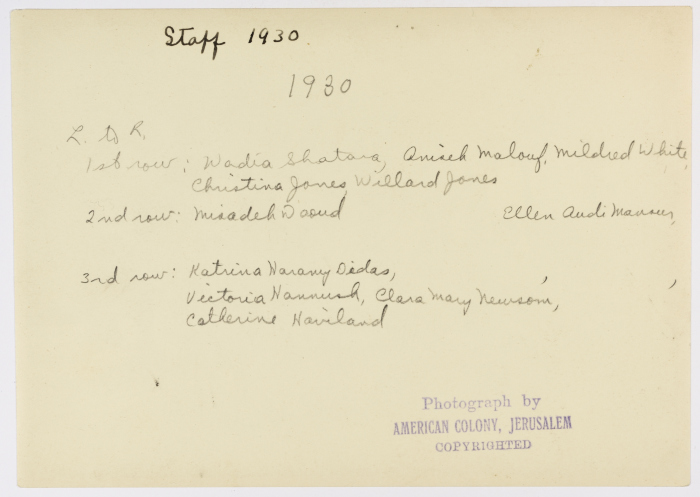 Staff 1930
1930
L. to R.
1st row: Wadia Shatara, Aniseh Malouf, Mildred White,
Christina Jones, Willard Jones
2nd row: Misadeh Daoud Ellen Audi Mansur,
3rd row: Katrina Haramy Didas, , ,
Victoria Hannush, Clara Mary Newsom,
Catherine Haviland
Photograph by
AMERICAN COLONY, JERUSALEM
COPYRIGHTED